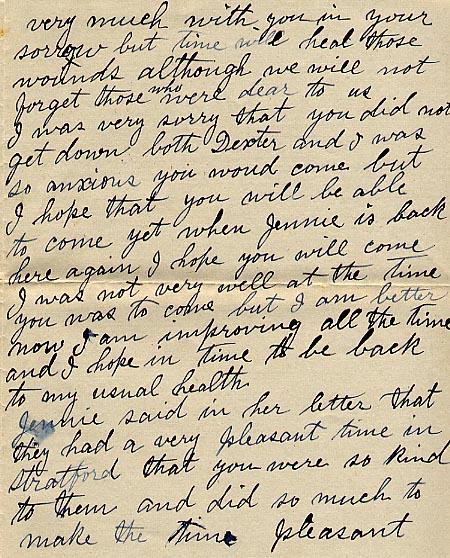 very much with you in your
sorrow but time will heal those
wounds although we will not
forget those who were dear to us
I was very sorry that you did not
get down both Dexter and I was
so anxious you woud come but
I hope that you will be able
to come yet when Jennie is back
here again I hope you will come
I was not very well at the time
you was to come but I am better
now I am improving all the time
and I hope in time to be back
to my usual health
Jennie said in her letter that
they had a very pleasant time in
Stratford that you were so kind
to them and did so much to
make the time pleasant